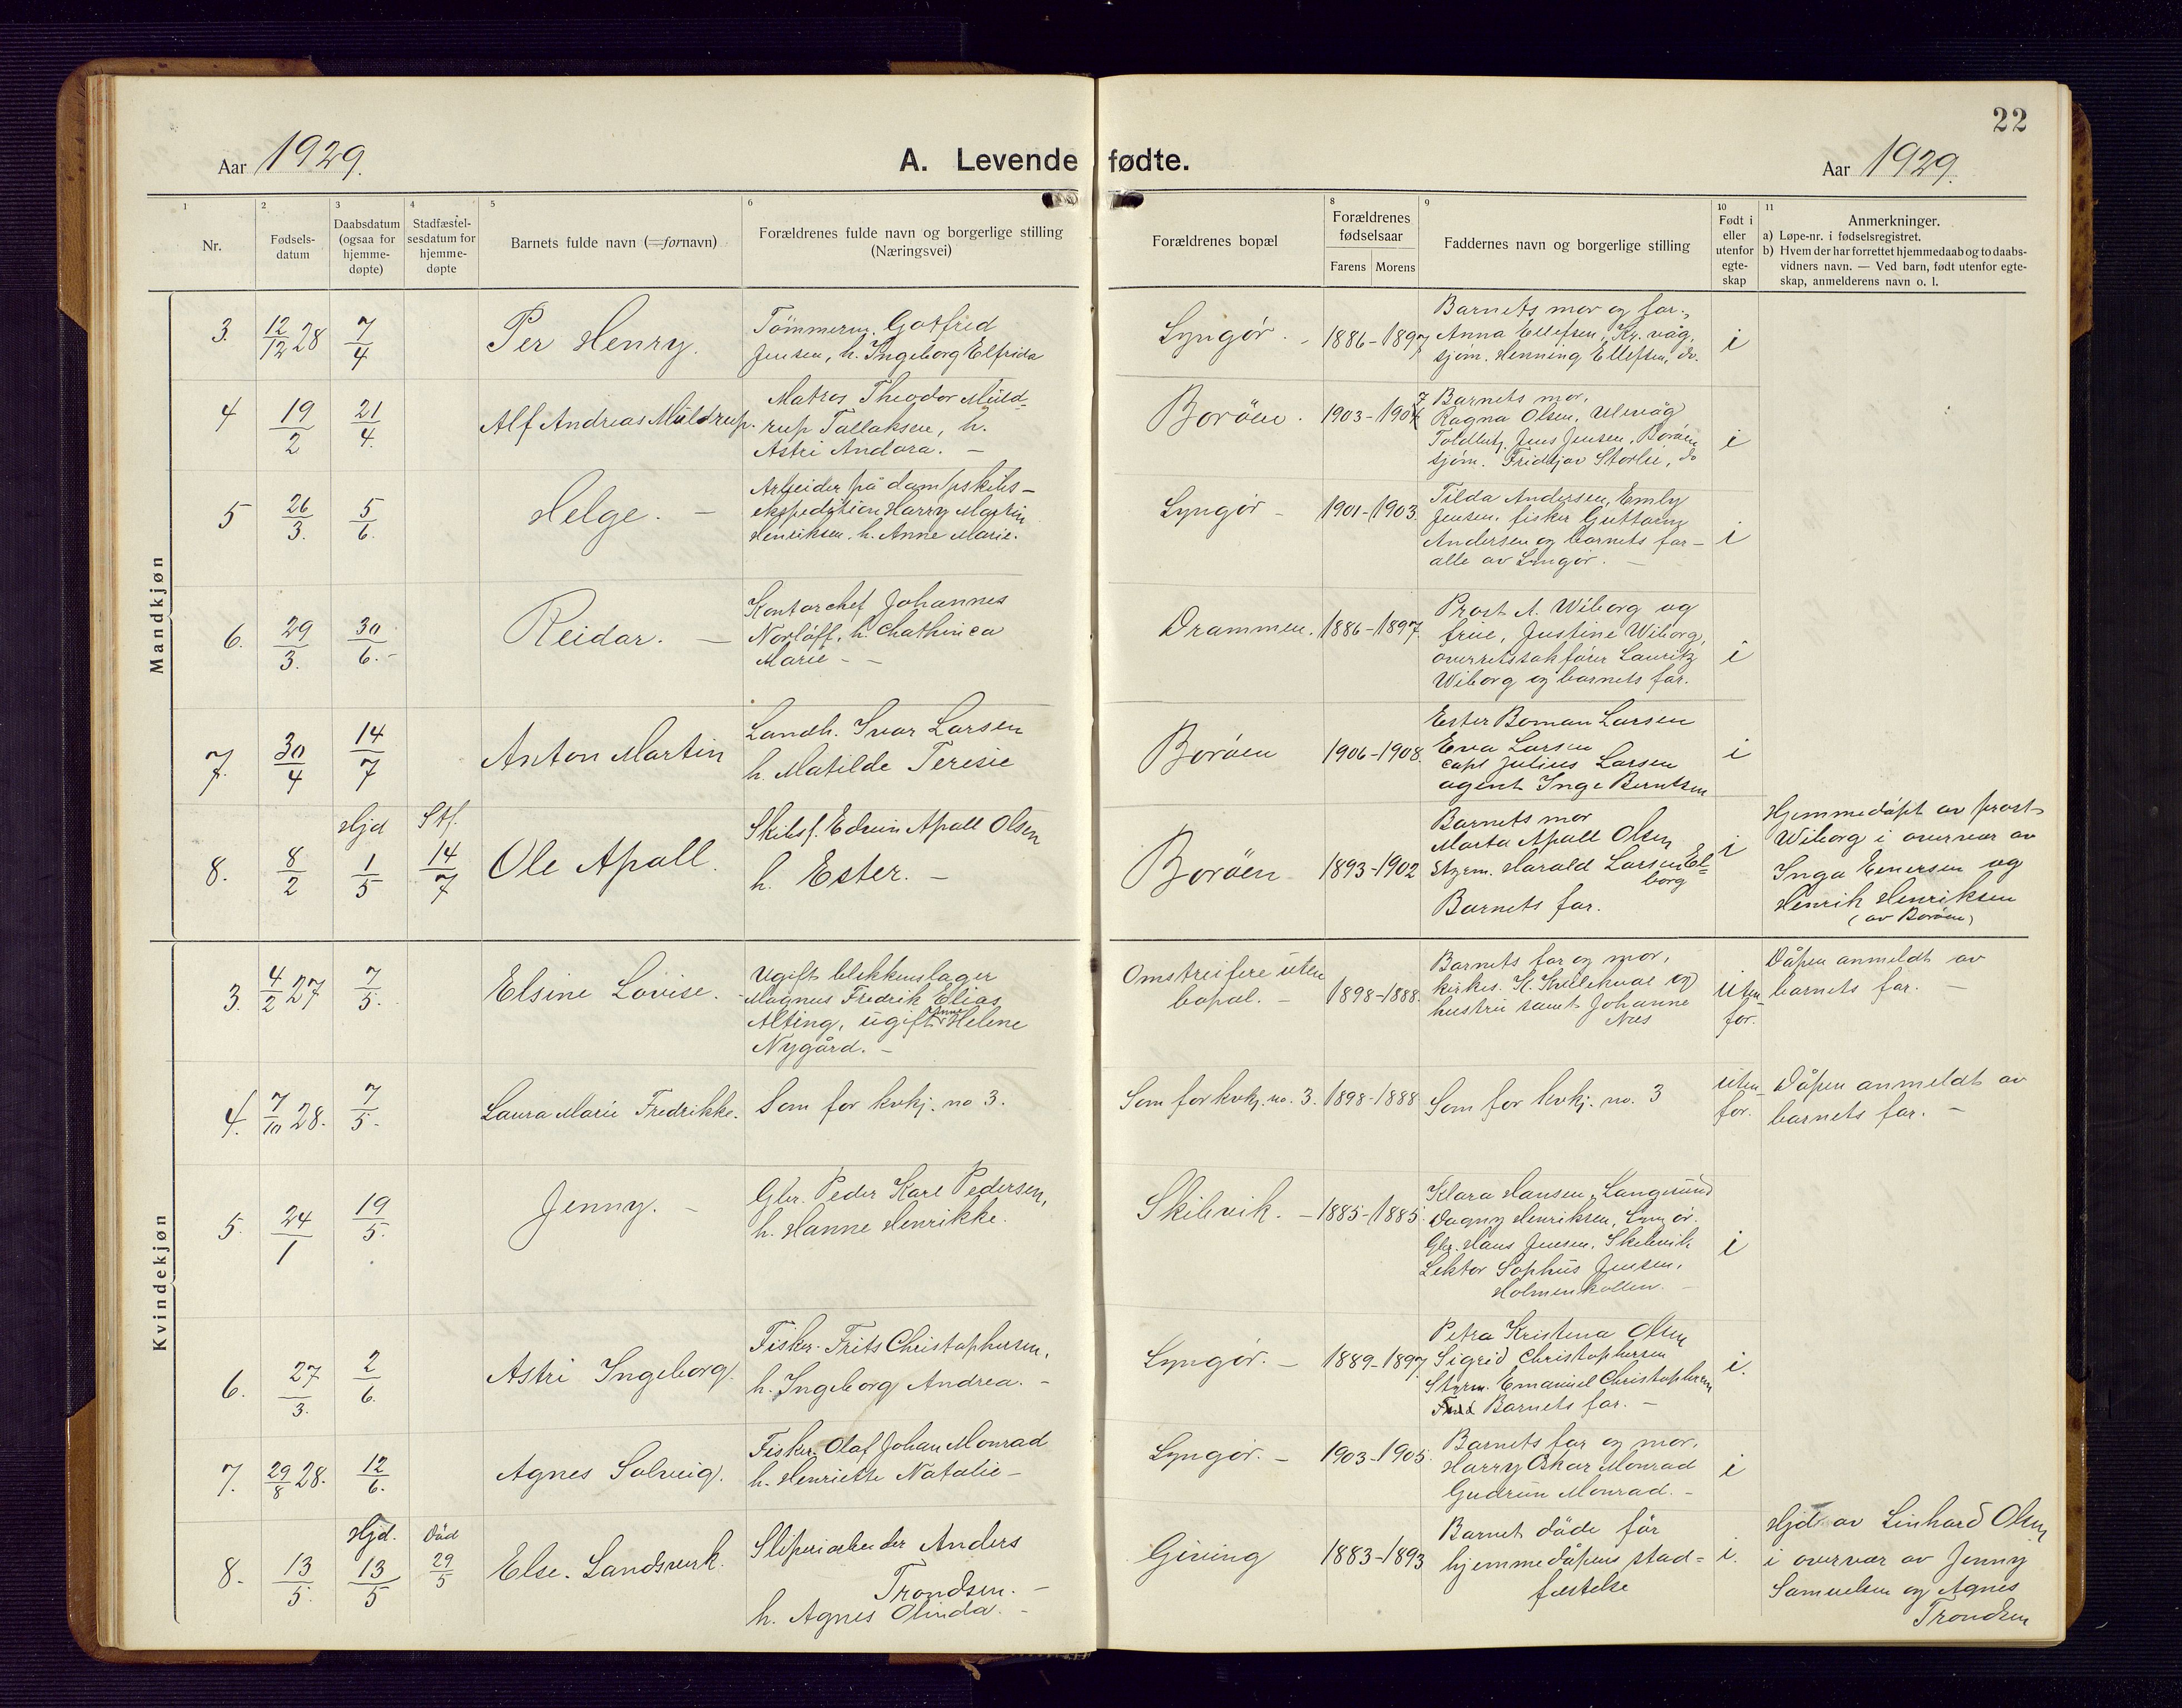 22
Aar 1929.
A. Levende fødte.
Aar 1929.
1
2
3
4
5
6
8
9
10
11
Nr.
Fødsels-
datum
Daabsdatum
(ogsaa for
hjemme-
døpte)
Stadfæstel-
sesdatum for
hjemme-
døpte
Barnets fulde navn (=fornavn)
Forældrenes fulde navn og borgerlige stilling
(Næringsvei)
Forældrenes bopæl
Forældrenes
fødselsaar
Farens Morens
Faddernes navn og borgerlige stilling
Født i
eller
utenfor
egte-
skap
Anmerkninger.
a) Løpe-nr. i fødselsregistret.
b) Hvem der har forrettet hjemmedaab og to daabs-
vidners navn. — Ved barn, født utenfor egte-
skap, anmelderens navn o. l.
Mandkjøn
3. 12/12 28 7/4
Per Henry.
Tømmerm. Gotfred
Jensen, h. Ingeborg Elfrida
Lyngør.
1886-1897
Barnets mor og far.,
Anna Ellefsen, Kr. våg,
sjøm. Henning Ellefsen, do.
i
4 19/2 21/4.
Alf Andreas Müldrup.
Matros Theodor Müld-
rup Tallaksen, h.
Astri Andora. —
Borøen.
1903-1907
Barnets mor,
Ragna Olsen,
Jens Jensen, Borøen
sjøm. Fridtjov Storlie, do
i
5 26/3. 5/6.
Helge. —
Arbeider på dampskibs-
ekspedition Harry Martin
Henriksen. h. Anne Marie.
Lyngør —
1901-1903.
Tilda Andersen, Emly
Jensen, fisker Guttorm
Andersen og barnets far —
alle av Lyngør. —
i
6. 29/3. 30/6.-
Reidar. —
Kontorchef Johannes
Norløff, h. Chathinca
Marie - -
Drammen.
1886-1897.
Prost A. Wiborg og
frue, Justine Wiborg,
overretssakfører Lauritz
Wiborg og barnets far.
i
7. 30/4 14/7
Anton Martin
Landh. Ivar Larsen
h. Matilde Teresie
Borøen
1906-1908.
Ester Boman Larsen
Eva Larsen
capt Julius Larsen
agent Inge Berntsen
i
Hjd Stf.
8. 8/2 1/5 14/7
Ole Apall.
Skibsf. Edvin Apall Olsen
h. Ester. —
Borøen
1893-1902
Barnets mor
Marta Apall Olsen
Styrm. Harald Larsen El-
borg
Barnets far.
i
Hjemmedøpt av prost
Wiborg i overvær av
Inga Evensen og
Henrik Henriksen
(av Borøen)
Kvindekjøn
3. 4/2 27 7/5.
Elsine Lovise.
Ugift blikkenslager
Magnus Fredrik Elias
Alting, ugift Anne Helene
Nygård. —
Omstreifere uten
bopæl. —
1898-1888.
Barnets far og mor,
kirkes. K. og
hustru samt Johanne
Næs
Uten-
for.
Dåpen anmeldt av
barnets far. —
4. 7/10 28. 7/5.
Laura Marie Fredrikke.
Som for kvkj. no 3.
Som for kvkj. no. 3.
1898-1888
Som for kvkj. no. 3
uten-
for.
Dåpen anmeldt av
barnets far. —
5. 24/1 19/5.
Jenny. —
Gbr. Peder Karl Pedersen,
h. Hanne Henrikke.
Skibvik. —
1885-1885.
Klara Hansen, Langesund
Dagny Henriksen, Lyngør.
Gbr. Hans Jensen, Skibvik
Lektor Sophus Jensen,
Holmenkollen. —
i
6. 27/3. 2/6.
Astri Ingeborg.
Fisker Frits Christophersen,
h. Ingeborg Andrea. -
Lyngør. —
1889-1897.
Petra Kristina Olsen
Sigrid Christophersen
Styrm. Emanuel Christophersen
Barnets far. —
i.
7. 29/8 28. 12/6.
Agnes Solveig.
Fisker. Olaf Johan Monrad
h. Henriette Natalie —
Lyngør. —
1903-1905.
Barnets far og mor,
Harry Oskar Monrad
Gudrun Monrad. -
i
Hjd. Død
8. 13/5. 13/5 29/5
Else. Landsverk.
Sliperiarbeider Anders
Trondsen. —
h. Agnes Olinda. -
Giving
1883-1893
Barnet døde før
hjemmedåpens stad-
festelse
i.
Hjd av Linhard Olsen
i overvær av Jenny
Samuelsen og Agnes
Trondsen